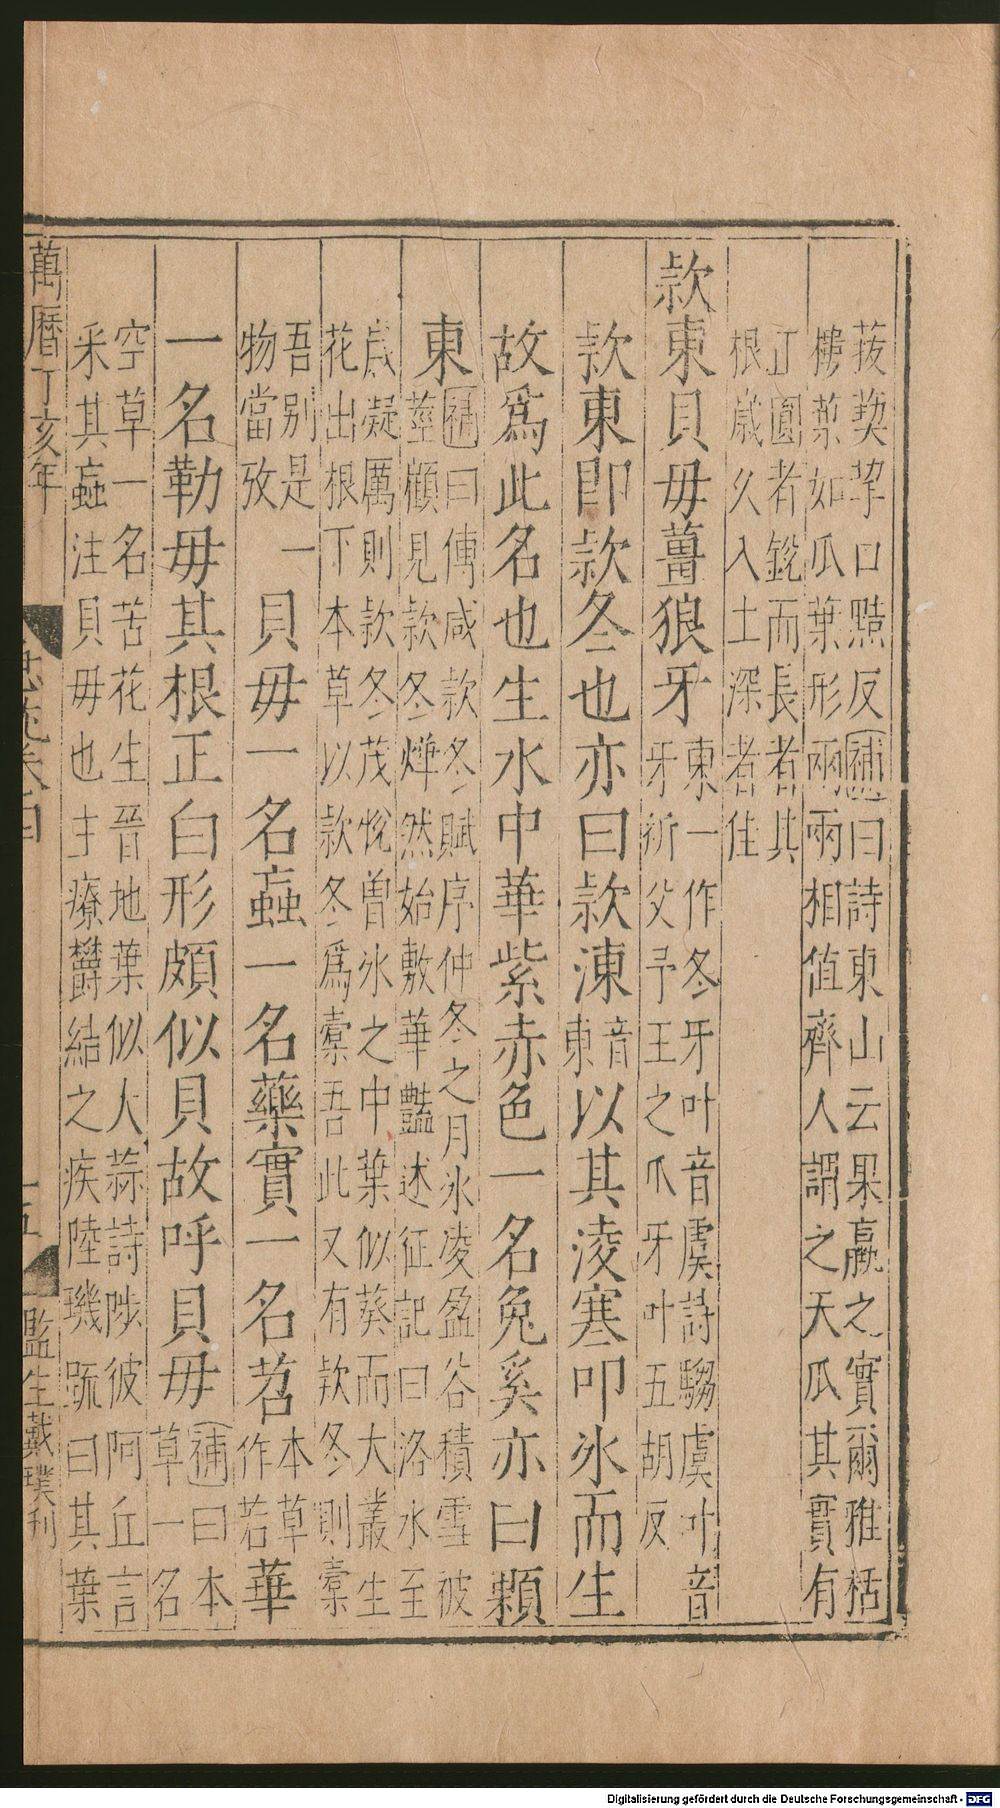 菝葜挈口黠反補曰詩東山云果臝之實爾雅栝
樓葉如瓜葉形兩兩相值齊人謂之天瓜其實有
正圓者銳而長者其
根歲久入土深者佳
款東貝毋薑狼牙東一作冬牙叶音虞詩騶虞叶音
牙祈父予王之爪牙叶五胡反
款東即款冬也亦曰款凍音東以其淩寒叩氷而生
故爲此名也生水中華紫赤色一名兔奚亦曰顆
東補曰傅咸款冬賦序仲冬之月氷凌盈谷積雪被
崖顧見款冬煒然始敷華豔述征記曰洛水至
歲凝厲則款冬茂悅曽氷之中葉似葵而大叢生
花出根下本草以款冬爲橐吾此又有款冬則橐
吾別是一
物當攷
貝毋一名蝱一名藥實一名苕本草作若華
一名勒毋其根正白形頗似貝故呼貝毋補曰本草一名
空草一名苦花生晉地葉似大蒜詩陟彼阿丘言
采其蝱注貝毋也主療鬱結之疾陸璣䟽曰其葉
萬曆丁亥年
監生戴璞刋
Digitalisierung gefördert durch die Deutsche Forschungsgemeinschaft - DFG